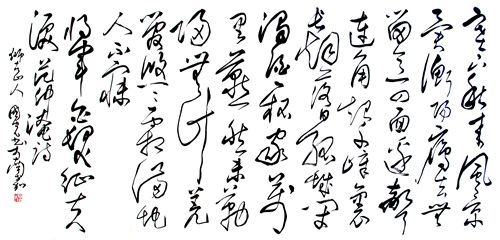 塞下秋来风景
异衡阳雁去无
留意四面边声
连角起千嶂里
长烟落日孤城闭
浊酒一杯家万
里燕然未勒
归无计羌
管悠悠霜满地
人不寐
将军白发征夫
泪范仲淹诗